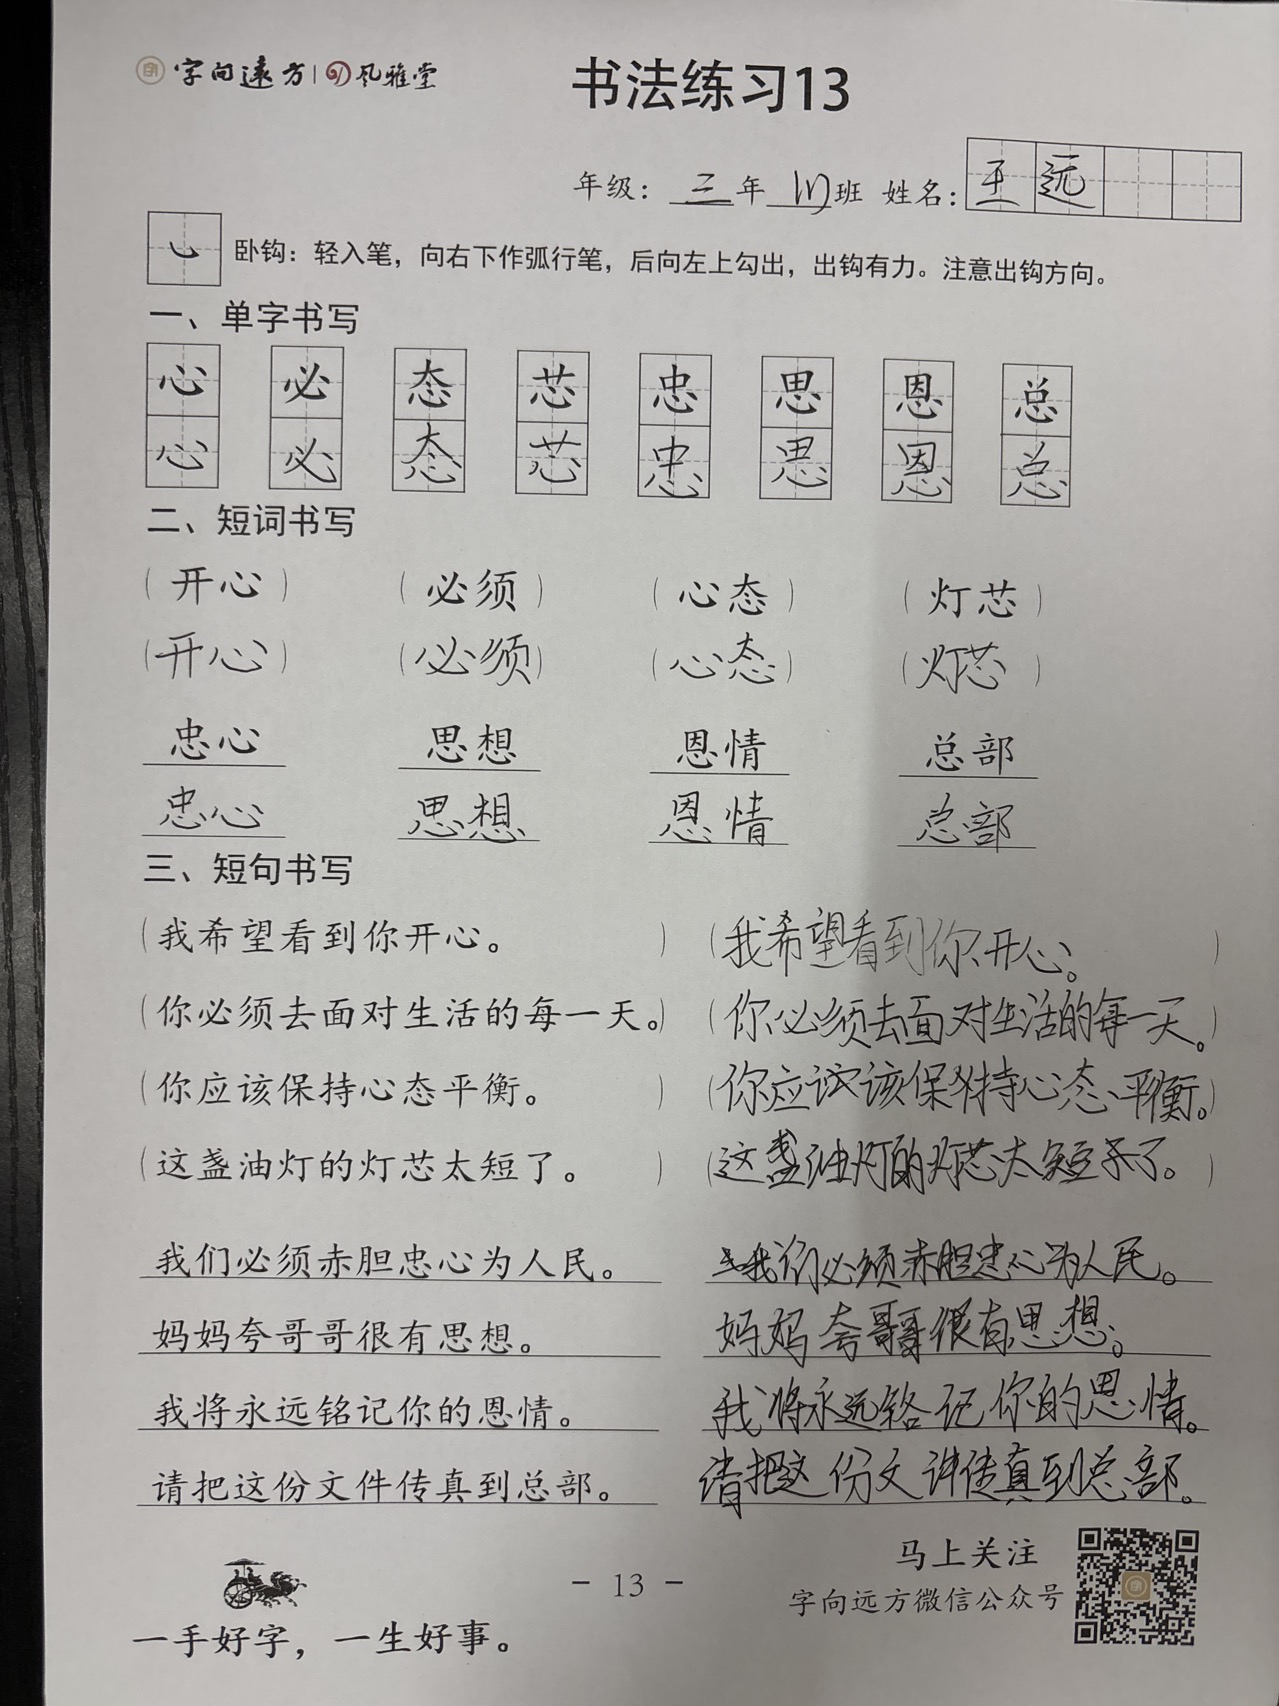 字向远方 风雅堂
书法练习13
年级：三年(1)班 姓名：王远
卧钩：轻入笔，向右下作弧行笔，后向左上勾出，出钩有力。注意出钩方向。
一、单字书写
心 必 态 芯 忠 思 恩 总
心 必 态 芯 忠 思 恩 总
二、短词书写
（开心） （必须） （心态） （灯芯）
（开心） （必须） （心态） （灯芯）
忠心 思想 恩情 总部
忠心 思想 恩情 总部
三、短句书写
（我希望看到你开心。） （我希望看到你开心。）
（你必须去面对生活的每一天。） （你必须去面对生活的每一天。）
（你应该保持心态平衡。） （你应该保持心态平衡。）
（这盏油灯的灯芯太短了。） （这盏油灯的灯芯太短了。）
我们必须赤胆忠心为人民。 我们必须赤胆忠心为人民。
妈妈夸哥哥很有思想。 妈妈夸哥哥很有思想。
我将永远铭记你的恩情。 我将永远铭记你的恩情。
请把这份文件传真到总部。 请把这份文件传真到总部。
马上关注
- 13 -
字向远方微信公众号
一手好字，一生好事。